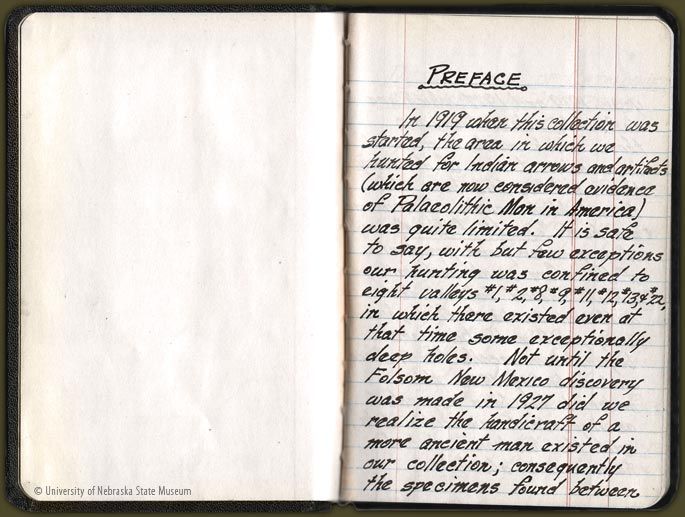 PREFACE
In 1919, when this collection was
started, the area in which we
hunted for Indian arrows and artifacts
(which are now considered evidence
of Palaeolithic Man in America)
was quite limited. It is safe
to say, with but few exceptions
our hunting was confined to
eight valleys #1, #2, #8, #9, #11, #12, #13, & #22,
in which there existed even at
that time some exceptionally
deep holes. Not until the
Folsom New Mexico discovery
was made in 1927 did we
realize the handicraft of a
more ancient man existed in
our collection; consequently
the specimens found between
© University of Nebraska State Museum